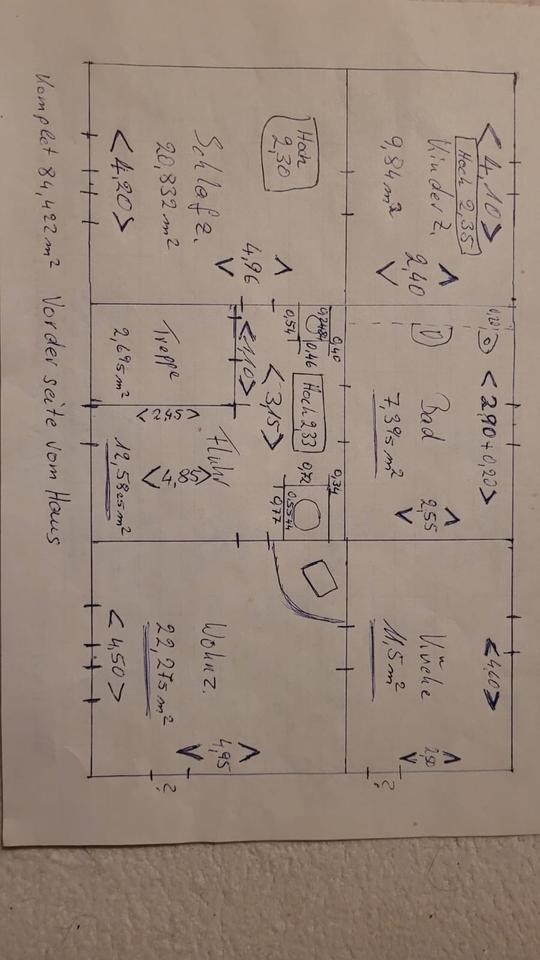 < 4,10 >
Hoch 2,35
Kinderz.
9,84 m²
2,40
0,20
< 2,90 + 0,20 >
Bad
7,395 m²
2,55
< 4,60 >
Küche
11,5 m²
2,50
?
Hoh
2,30
Schlafz.
20,832 m²
< 4,20 >
4,96
0,2484
0,40
0,54
0,46
< 1,10 >
< 3,15 >
Hoch 2,33
Treppe
2,695 m²
< 2,45 >
Fluhr
< 4,85 >
12,5825 m²
0,72
0,34
0,5544
0,77
Wohnz.
22,275 m²
< 4,50 >
4,95
?
Komplet 84,422 m² Vorderseite vom Haus